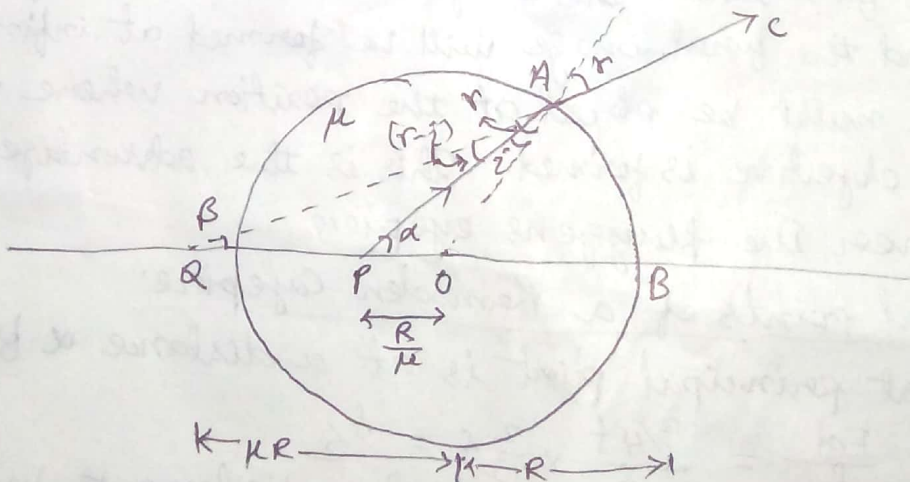 C
A
r
μ
r
(r-i)
i
β
α
Q
P
O
B
R/μ
μR
R